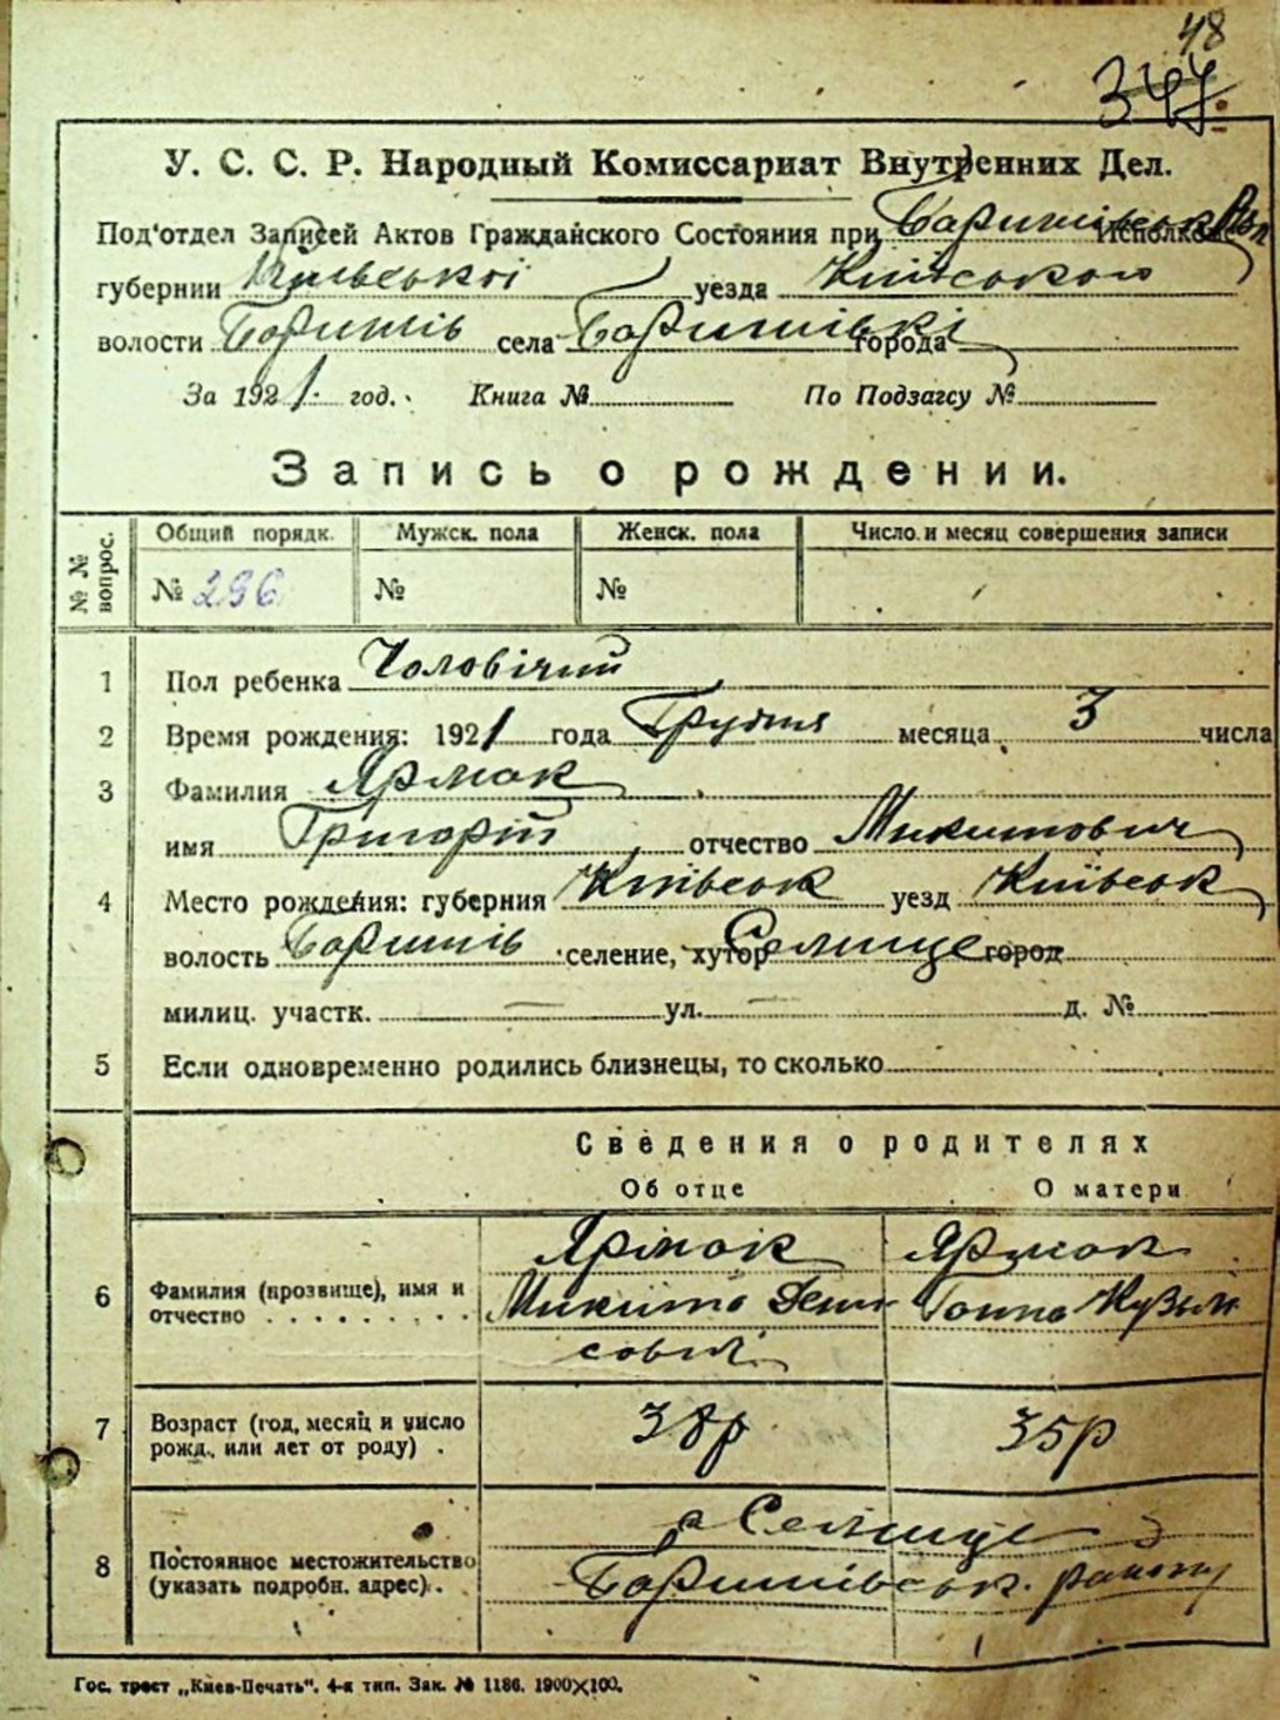 48
347
У. С. С. Р. Народный Комиссариат Внутренних Дел.
Под'отдел Записей Актов Гражданского Состояния при Баришівськ Исполкоме
губернии Київської уезда Київського
волости Баришів села Баришівкі города
За 1921 год. Книга № По Подзагсу №
Запись о рождении.
№№ вопрос. Общий порядк. Мужск. пола Женск. пола Число и месяц совершения записи
№ 296 № №
1 Пол ребенка Чоловічий
2 Время рождения: 1921 года Грудня месяца 3 числа
3 Фамилия Ярмак
имя Григорій отчество Микитович
4 Место рождения: губерния Київськ уезд Київськ
волость Баришів селение, хутор Селище город
милиц. участк. — ул. — д. №
5 Если одновременно родились близнецы, то сколько
Сведения о родителях
Об отце О матери
Ярмак Ярмак
6 Фамилия (прозвище), имя и отчество Микита Дени Ганна Кузьм
сович
7 Возраст (год, месяц и число рожд. или лет от роду) 38р 35р
с Селище
8 Постоянное местожительство (указать подробн. адрес). Баришівськ. району
Гос. трест „Киев-Печать". 4-я тип. Зак. № 1186. 1900×100.